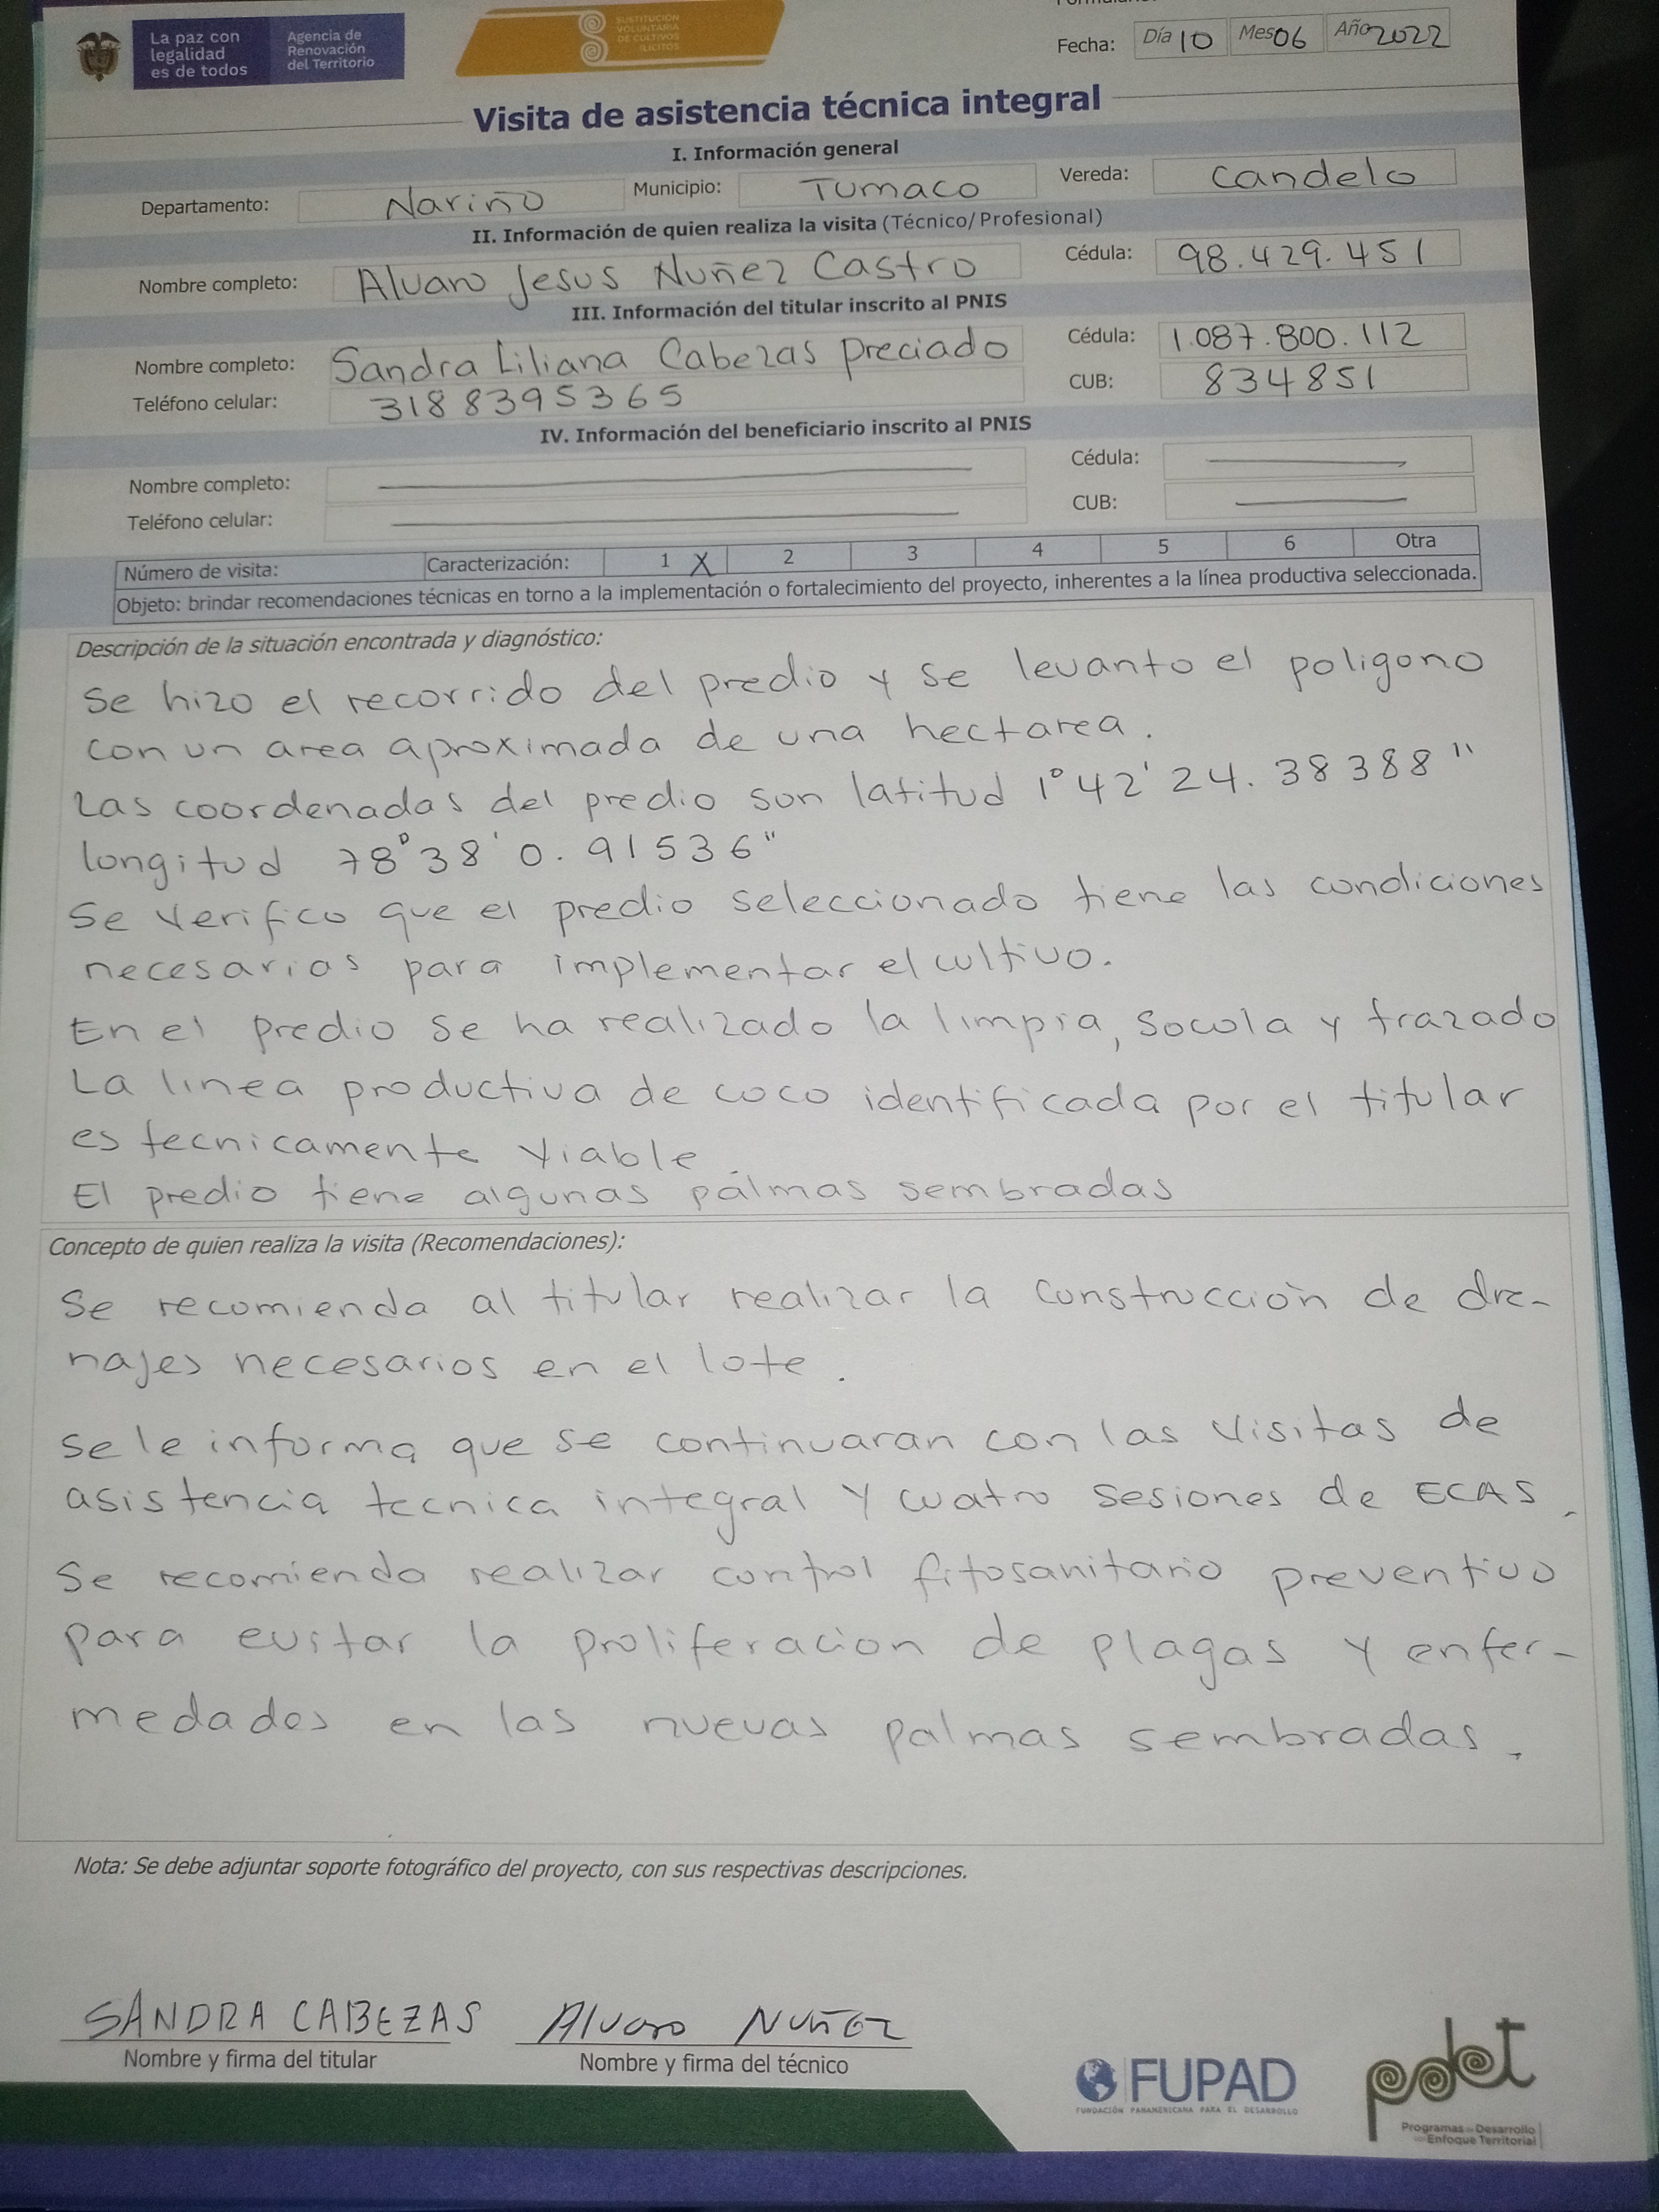 La paz con
legalidad
es de todos
Agencia de
Renovación
del Territorio
SUSTITUCIÓN
VOLUNTARIA
DE CULTIVOS
ILÍCITOS
Fecha: Día 10 Mes 06 Año 2022
Visita de asistencia técnica integral
I. Información general
Departamento: Nariño Municipio: Tumaco Vereda: Candelo
II. Información de quien realiza la visita (Técnico/Profesional)
Nombre completo: Alvaro Jesus Nuñez Castro Cédula: 98.429.451
III. Información del titular inscrito al PNIS
Nombre completo: Sandra Liliana Cabezas preciado Cédula: 1.087.800.112
Teléfono celular: 3188395365 CUB: 834851
IV. Información del beneficiario inscrito al PNIS
Nombre completo: Cédula:
Teléfono celular: CUB:
Número de visita: Caracterización: 1 X 2 3 4 5 6 Otra
Objeto: brindar recomendaciones técnicas en torno a la implementación o fortalecimiento del proyecto, inherentes a la línea productiva seleccionada.
Descripción de la situación encontrada y diagnóstico:
Se hizo el recorrido del predio y se levanto el poligono
con un area aproximada de una hectarea.
Las coordenadas del predio son latitud 1°42'24.38388"
longitud 78°38'0.91536"
Se verifico que el predio seleccionado tiene las condiciones
necesarias para implementar el cultivo.
En el predio se ha realizado la limpia, socola y trazado
La linea productiva de coco identificada por el titular
es tecnicamente viable.
El predio tiene algunas palmas sembradas
Concepto de quien realiza la visita (Recomendaciones):
Se recomienda al titular realizar la construcción de dre-
najes necesarios en el lote.
Se le informa que se continuaran con las visitas de
asistencia tecnica integral y cuatro sesiones de ECAS.
Se recomienda realizar control fitosanitario preventivo
para evitar la proliferacion de plagas y enfer-
medades en las nuevas palmas sembradas.
Nota: Se debe adjuntar soporte fotográfico del proyecto, con sus respectivas descripciones.
SANDRA CABEZAS Alvaro Nuñez
Nombre y firma del titular Nombre y firma del técnico
FUPAD
FUNDACIÓN PANAMERICANA PARA EL DESARROLLO
pdet
Programas de Desarrollo
con Enfoque Territorial